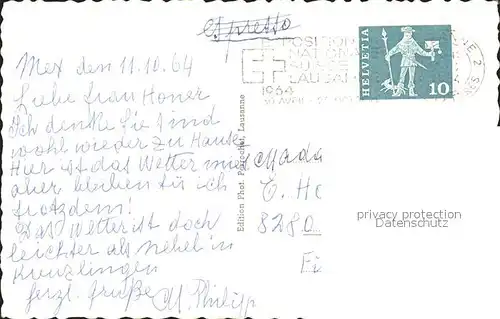 espresso
Mex den 11.10.64
Liebe Frau Honer
Ich denke Sie sind
wohl wieder zu Hause.
Hier ist das Wetter mies
aber bleiben tu ich
trotzdem!
Das Wetter ist doch
leichter als Nebel in
Kreuzlingen
herzl. Grüße M. Philipp
Edition Phot. Perrochet, Lausanne
EXPOSITION
NATIONALE
SUISSE
LAUSANNE
1964
HELVETIA
10
Mada
E. Ho
8280
privacy protection
Datenschutz